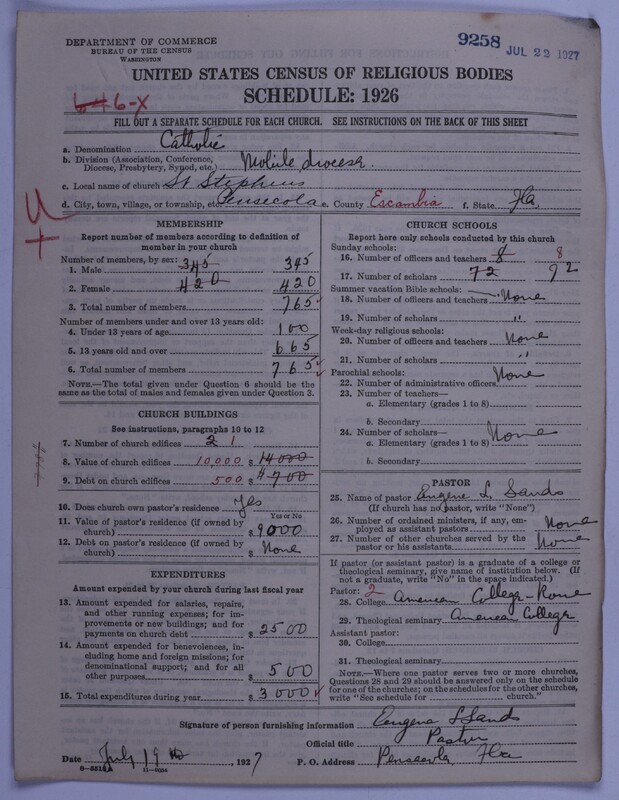 DEPARTMENT OF COMMERCE
BUREAU OF THE CENSUS
WASHINGTON
9258 JUL 22 1927
UNITED STATES CENSUS OF RELIGIOUS BODIES
SCHEDULE: 1926
646-X
FILL OUT A SEPARATE SCHEDULE FOR EACH CHURCH. SEE INSTRUCTIONS ON THE BACK OF THIS SHEET
a. Denomination Catholic
b. Division (Association, Conference, Diocese, Presbytery, Synod, etc.) Mobile diocese.
c. Local name of church St Stephens
d. City, town, village, or township, etc. Pensecola e. County Escambia f. State Fla
MEMBERSHIP
Report number of members according to definition of member in your church
Number of members, by sex:
1. Male 345 345
2. Female 420 420
3. Total number of members 765
Number of members under and over 13 years old:
4. Under 13 years of age 100
5. 13 years old and over 665
6. Total number of members 765
NOTE.—The total given under Question 6 should be the same as the total of males and females given under Question 3.
CHURCH BUILDINGS
See instructions, paragraphs 10 to 12
7. Number of church edifices 2 1
8. Value of church edifices 10,000 $ 14000
9. Debt on church edifices 500 $ 4700
10. Does church own pastor's residence? Yes
Yes or No
11. Value of pastor's residence (if owned by church) $ 9000
12. Debt on pastor's residence (if owned by church) $ None
EXPENDITURES
Amount expended by your church during last fiscal year
13. Amount expended for salaries, repairs, and other running expenses; for improvements or new buildings; and for payments on church debt $ 2500
14. Amount expended for benevolences, including home and foreign missions; for denominational support; and for all other purposes $ 500
15. Total expenditures during year $ 3000
CHURCH SCHOOLS
Report here only schools conducted by this church
Sunday schools:
16. Number of officers and teachers 8 8
17. Number of scholars 72 72
Summer vacation Bible schools:
18. Number of officers and teachers None
19. Number of scholars "
Week-day religious schools:
20. Number of officers and teachers None
21. Number of scholars "
Parochial schools:
22. Number of administrative officers None
23. Number of teachers—
a. Elementary (grades 1 to 8)
b. Secondary
24. Number of scholars— None
a. Elementary (grades 1 to 8)
b. Secondary
PASTOR
25. Name of pastor Eugene L. Sands
(If church has no pastor, write "None")
26. Number of ordained ministers, if any, employed as assistant pastors None
27. Number of other churches served by the pastor or his assistants None
If pastor (or assistant pastor) is a graduate of a college or theological seminary, give name of institution below. (If not a graduate, write "No" in the space indicated.)
Pastor: 2
28. College American College-Rome
29. Theological seminary American College
Assistant pastor:
30. College
31. Theological seminary
NOTE.—Where one pastor serves two or more churches, Questions 28 and 29 should be answered only on the schedule for one of the churches; on the schedules for the other churches, write "See schedule for church."
Signature of person furnishing information Eugene L Sands
Official title Pastor
Date July 19 th, 1927 P. O. Address Pensacola, Fla
8-5512A 11-9554